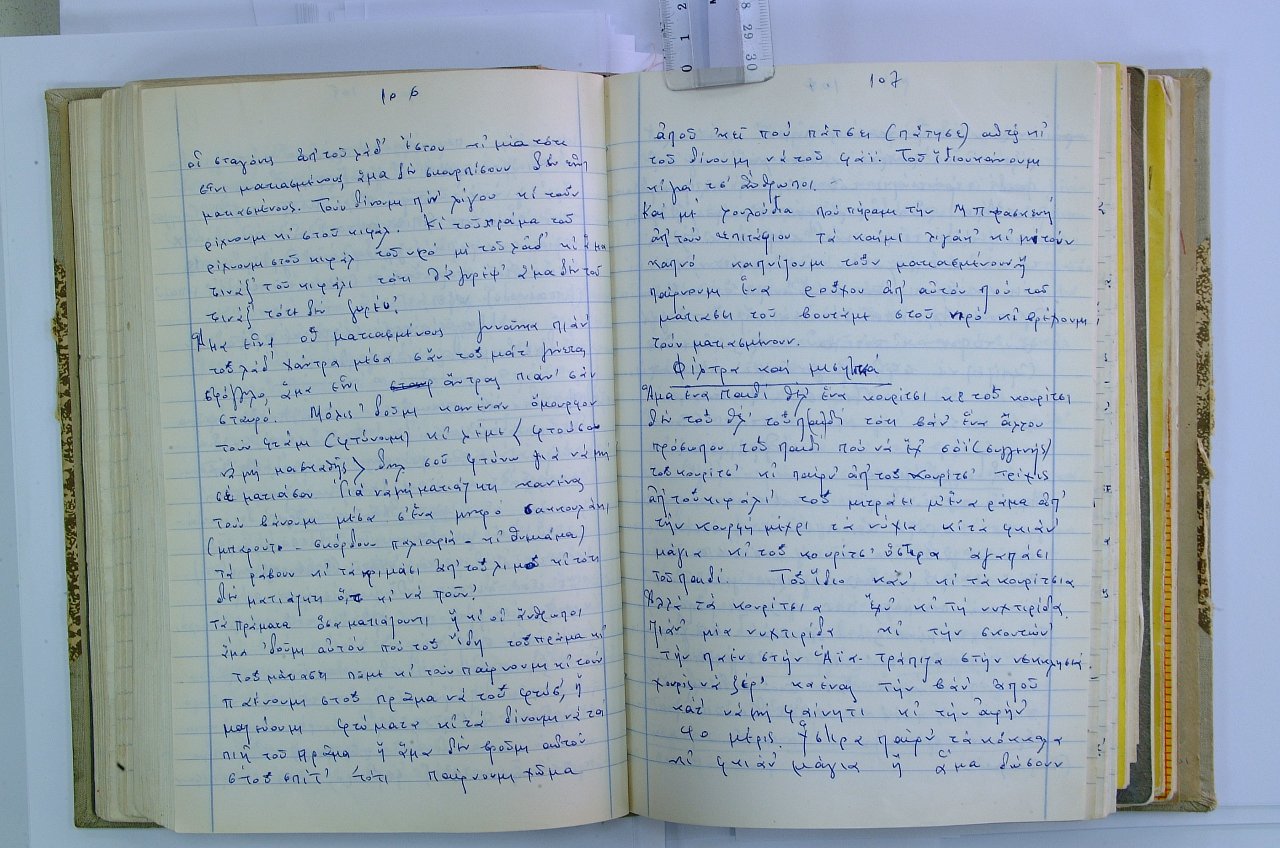 106
οἱ σταγόνις ἀπ' τοῦ λάδ' ἔστου κὶ μία τότι
εἶνι ματιασμένους, ἅμα δὲν σκουρπίσουν δὲν εἶνι
ματιασμένους. Τοὺν δίνουμι πιεῖ λίγου κὶ τοὺν
ρίχνουμι κὶ στοὺ κιφάλ. Κὶ τοὺ πρᾶμα τοῦ
ρίχνουμι στοὺ κιφάλ τοὺ νιρό μὶ τοὺ λάδ' κὶ ἅμα
τινάξ' τοὺ κιφάλι τότι θὰ γυρέψ' ἅμα δὲν τοὺ
τινάξ' τότι δὲν γυρεύ'.
Ἅμα εἶνι οὑ ματιασμένους γυναῖκα πιάν'
τοὺ λάδ' χάντρα μέσα σὰν τοὺ μάτ' γίνεται
στρόγγυλο, ἅμα εἶνι ἄντρας πιάν' σὰν
σταυρό. Μόλις δοῦμι κανέναν ὄμουρφον
τοὺν φτάμι (φτύνουμι) κὶ λέμι < φτοῦ σου
νὰ μὴ βασκαθῆς > δηλ σοῦ φτύνω γιὰ νὰ μὴ
σὲ ματιάσου. Γιὰ νὰ μὴ ματιάζητι κανένας
τοὺν βάνουμι μέσα σ' ἕνα μικρό σακκουλάκι
(μπαρούτι - σκόρδου παλιαριά - κὶ θυμιάμα)
τὰ ράβουν κὶ τὰ κριμάσι ἀπ' τοὺ λιμό κὶ τότι
δὲν ματιάζητι ὅ,τι κὶ νὰ ποῦν!
Τὰ πράματα ὅσα ματιάζουντι ἢ κὶ οἱ ἄνθρωποι
ἅμα 'δοῦμι αὐτόν ποὺ τοὺ 'ἴδη τοὺ πρᾶμα κὶ
τοὺ μάτιασι πᾶμι κὶ τοὺν παίρνουμι κὶ τοὺν
παένουμι στοὺ πρᾶμα νὰ τοὺ φτύσ', ἢ
μαζεύουμι φτύματα κὶ τὰ δίνουμι νὰ τὰ
πιῆ τοὺ πρᾶμα ἢ ἅμα δὲν βροῦμι αὐτόν
στοὺ σπίτ' τότι παίρνουμι χῶμα
107
ἀποὺ 'κεῖ ποὺ πάτσει (πάτησε) αὐτός κὶ
τοὺ δίνουμι νὰ τοὺ φάϊ. Τοὺ ἴδιου κάνουμι
κὶ γιὰ τσ' ἀνθρώποι. -
Καὶ μὶ λουλούδια ποὺ πήραμι τὴν Μ Παρασκευή
ἀπ' τοὺν ἐπιτάφιου τὰ καῖμι λιγάκ' κὶ μὶ τοὺν
καπνό καπνίζουμι τοὺν ματιασμένουν ἢ
παίρνουμι ἕνα ροῦχου ἀπ' αὐτόν ποὺ τοὺ
μάτιασι τοὺ βουτᾶμι στοὺ νιρό κὶ βρέχουμι
τοὺν ματιασμένουν.
Φίλτρα καὶ μαγικά
Ἅμα ἕνα παιδί θέλ' ἕνα κουρίτσι κὶ τοὺ κουρίτσι
δὲν τοὺ θέλ' τοὺ παιδί τότι βάν' ἕνα ἄλλου
πρόσωπου τοὺ παιδί ποὺ νὰ ἔχ σόϊ (συγγενής)
τοὺ κουρίτσ' κὶ παίρν' ἀπ' τοὺ κουρίτσ' τρίχις
ἀπ' τοὺ κιφάλι' τοὺ μιτράει μ' ἕνα ράμα ἀπ'
τὴν κουρφή μέχρι τὰ νύχια κὶ τὰ φκιάν'
μάγια κὶ τοὺ κουρίτσ' ὕστερα ἀγαπάει
τοὺ παιδί. Τοὺ ἴδιο κάν' κὶ τὰ κουρίτσια
Ἀλλὰ τὰ κουρίτσια ἔχν' κὶ τὴ νυχτιρίδα.
Πιάν' μία νυχτιρίδα κὶ τὴν σκουτών'
τὴν παέν στὴν Ἁϊα-τράπιζα στὴν νεκκλησιά
χουρίς νὰ ξέρ' κανένας τὴν βάν' ἀποὺ
κατ' νὰ μὴ φαίνητι κὶ τὴν ἀφήν'
40 μέρις. Ὕστερα παίρν' τὰ κόκκαλα
κὶ φκιάν' μάγια ἢ ἅμα δώσουν